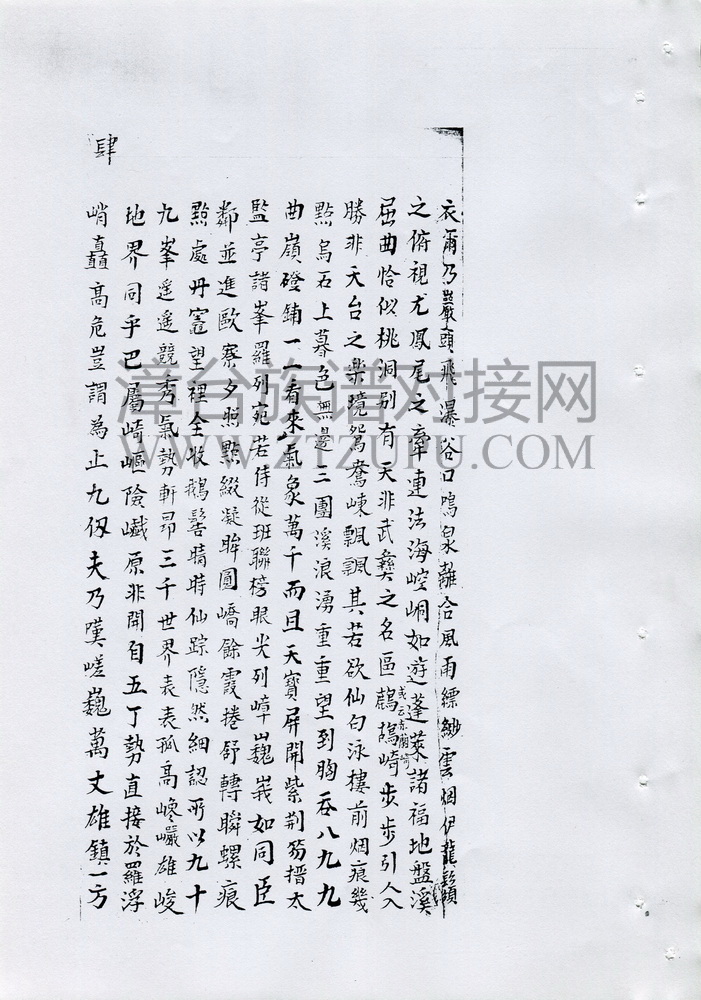 衣爾乃巖頭飛瀑谷口鳴泉離合風雨縹緲雲烟伊龍頭
之俯視尤鳳尾之牽連法海崆峒如遊蓬萊諸福地盤溪
屈曲恰似桃洞别有天非武彝之名區鷓鴣崎步步引人入
或云赤蘭崎
勝非天台之樂境鴛鴦崠飄飄其若欲仙白泳樓前烟痕幾
點烏石上暮色無邊三團溪浪湧重重望到胸吞八九九
曲嶺磴鋪一一看來氣象萬千而且天寶屏開紫荆笏搢太
監亭諸峯羅列宛若侍從班聯榜眼尖列嶂巍峩如同臣
鄰並進歐寮夕照點綴凝眸圓嶠餘霞捲舒轉瞬螺痕
點處丹竈望裡全收鵝髻晴時仙踪隱然細認所以九十
九峯遥遥競秀氣勢軒昂三千世界表表孤高巉巖雄峻
地界同乎巴屬崎嶇險巇原非開自五丁勢直接於羅浮
峭矗高危豈謂為止九仞夫乃嘆嵯巍萬丈雄鎮一方
肆
漳台族谱对接网
WWW.ZTZUPU.COM